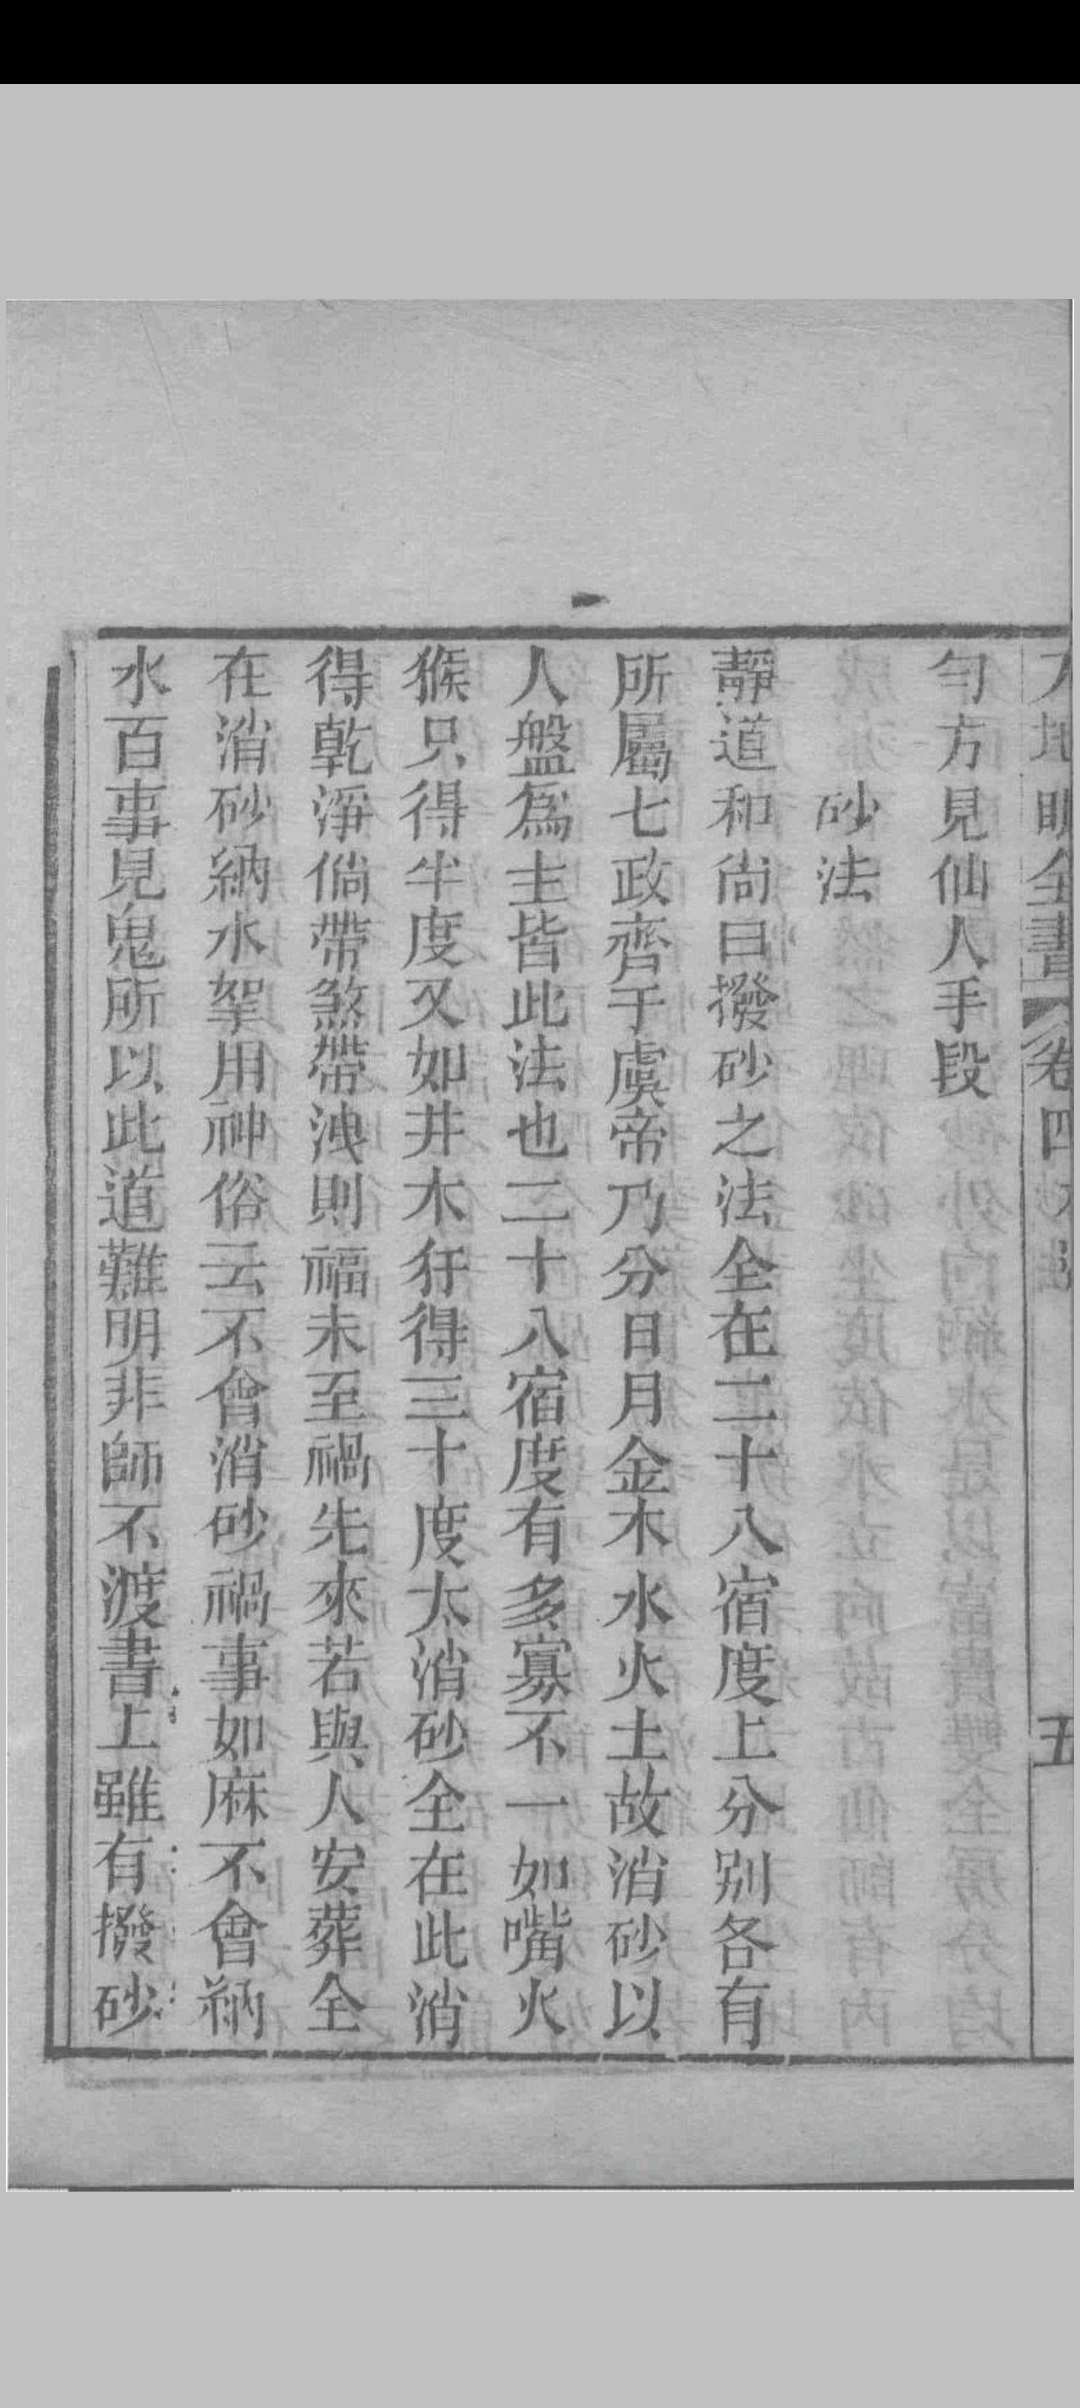 地眼全書 卷四 五
勻方見仙人手段
砂法
靜道和尚曰撥砂之法全在二十八宿度上分别各有
所屬七政齊于虞帝乃分日月金木水火土故消砂以
人盤爲主皆此法也二十八宿度有多寡不一如嘴火
猴只得半度又如井木犴得三十度太消砂全在此消
得乾淨倘帶煞帶洩則福未至禍先來若與人安葬全
在消砂納水挐用神俗云不會消砂禍事如麻不會納
水百事見鬼所以此道難明非師不渡書上雖有撥砂